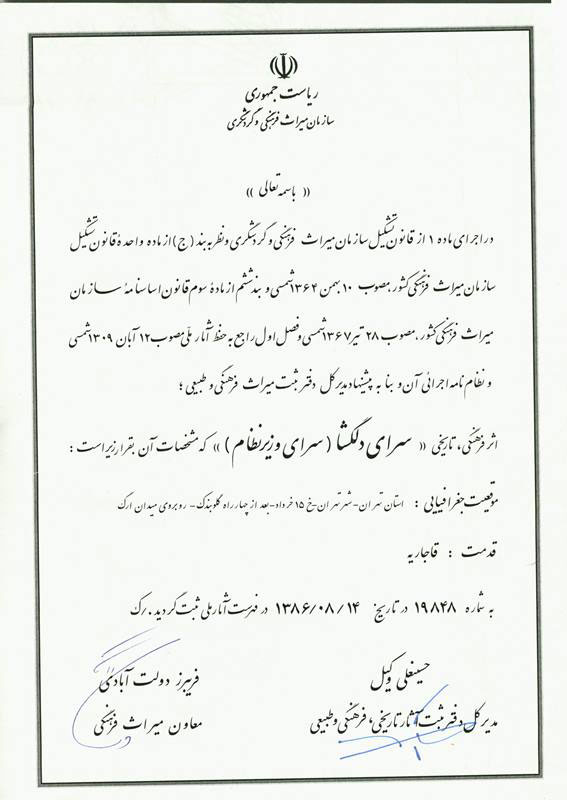 ریاست جمهوری
سازمان میراث فرهنگی و گردشگری
« باسمه تعالی »
در اجرای ماده ۱ از قانون تشکیل سازمان میراث فرهنگی و گردشگری و نظر به بند (ج) از ماده واحدهٔ قانون تشکیل
سازمان میراث فرهنگی کشور مصوب ۱۰ بهمن ۱۳۶۴ شمسی و بند ششم از مادهٔ سوم قانون اساسنامهٔ سازمان
میراث فرهنگی کشور، مصوب ۲۸ تیر ۱۳۶۷ شمسی و فصل اول راجع به حفظ آثار ملی مصوب ۱۲ آبان ۱۳۰۹ شمسی
و نظام نامه اجرائی آن و بنا به پیشنهاد مدیر کل دفتر ثبت میراث فرهنگی و طبیعی ؛
اثر فرهنگی، تاریخی « سرای دلگشا (سرای وزیر نظام) » که مشخصات آن بقرار زیر است :
موقعیت جغرافیایی : استان تهران-شهر تهران-خ ۱۵ خرداد-بعد از چهارراه گلوبندک- روبروی میدان ارک
قدمت : قاجاریه
به شماره ۱۹۸۴۸ در تاریخ ۱۳۸۶/۰۸/۱۴ در فهرست آثار ملی ثبت گردید./رک
حسینعلی وکیل
مدیر کل دفتر ثبت آثار تاریخی، فرهنگی و طبیعی
فریبرز دولت آبادی
معاون میراث فرهنگی